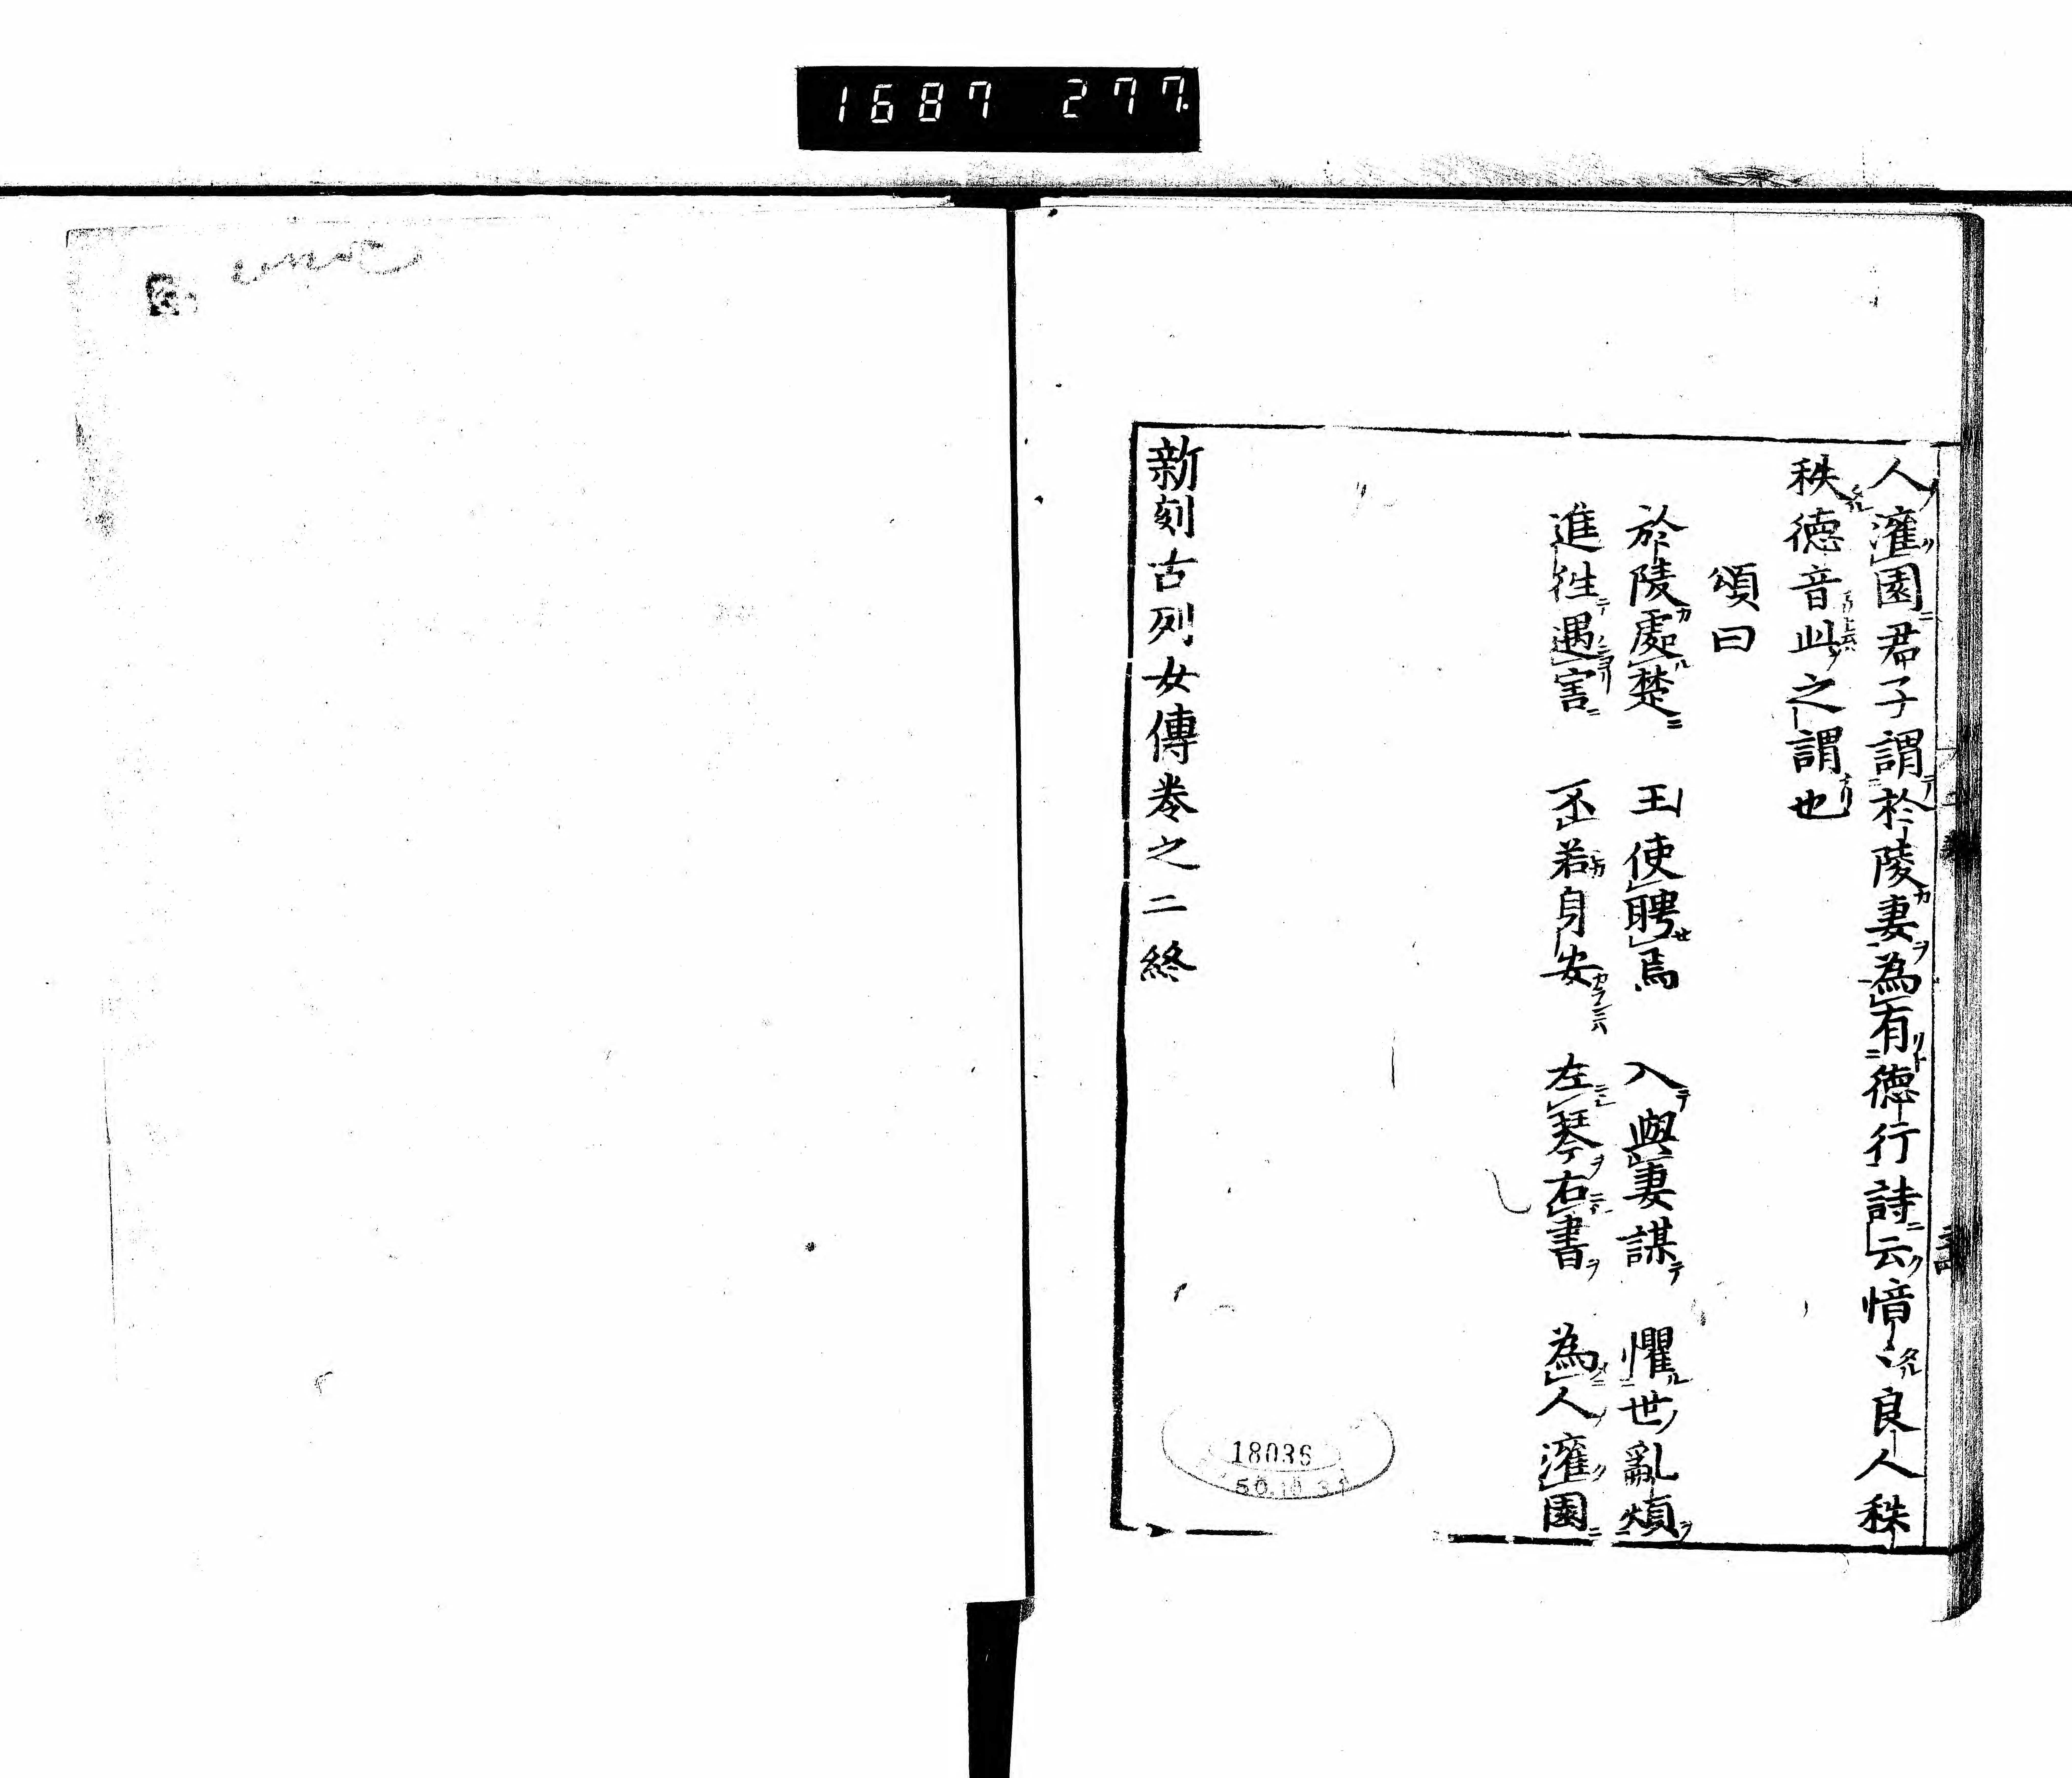 1687 277.
人灌園君子謂於陵妻為有德行詩云愔〻良人秩
秩德音此之謂也
頌曰
於陵處楚 王使聘焉 入與妻謀 懼世亂煩
進往遇害 不若身安 左琴右書 為人灌園
新刻古列女傳卷之二終
18036